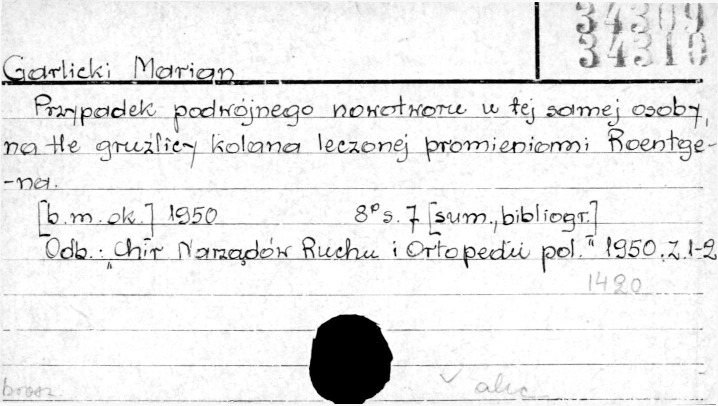 34309
34310
Garlicki Marian
Przypadek podwójnego nowotworu u tej samej osoby,
na tle gruźlicy kolana leczonej promieniami Roentge-
-na.
[b.m.ok.] 1950 8° s. 7 [sum., bibliogr.]
Odb.: „Chir Narządów Ruchu i Ortopedii pol." 1950.z.1-2
1420
brosz